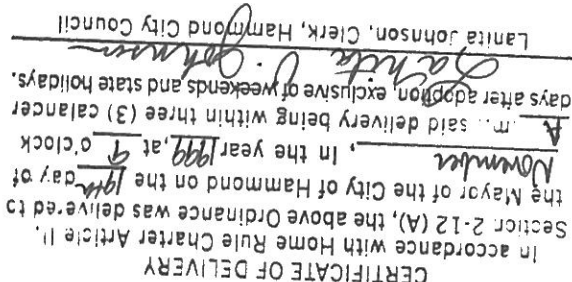 CERTIFICATE OF DELIVERY
In accordance with Home Rule Charter Article II,
Section 2-12 (A), the above Ordinance was delivered to
the Mayor of the City of Hammond on the 19th day of
November, In the year 1999, at 9 o'clock
A.m., said delivery being within three (3) calancer
days after adoption, exclusive of weekends and state holidays.
LaNita V. Johnson
Lanita Johnson, Clerk, Hammond City Council